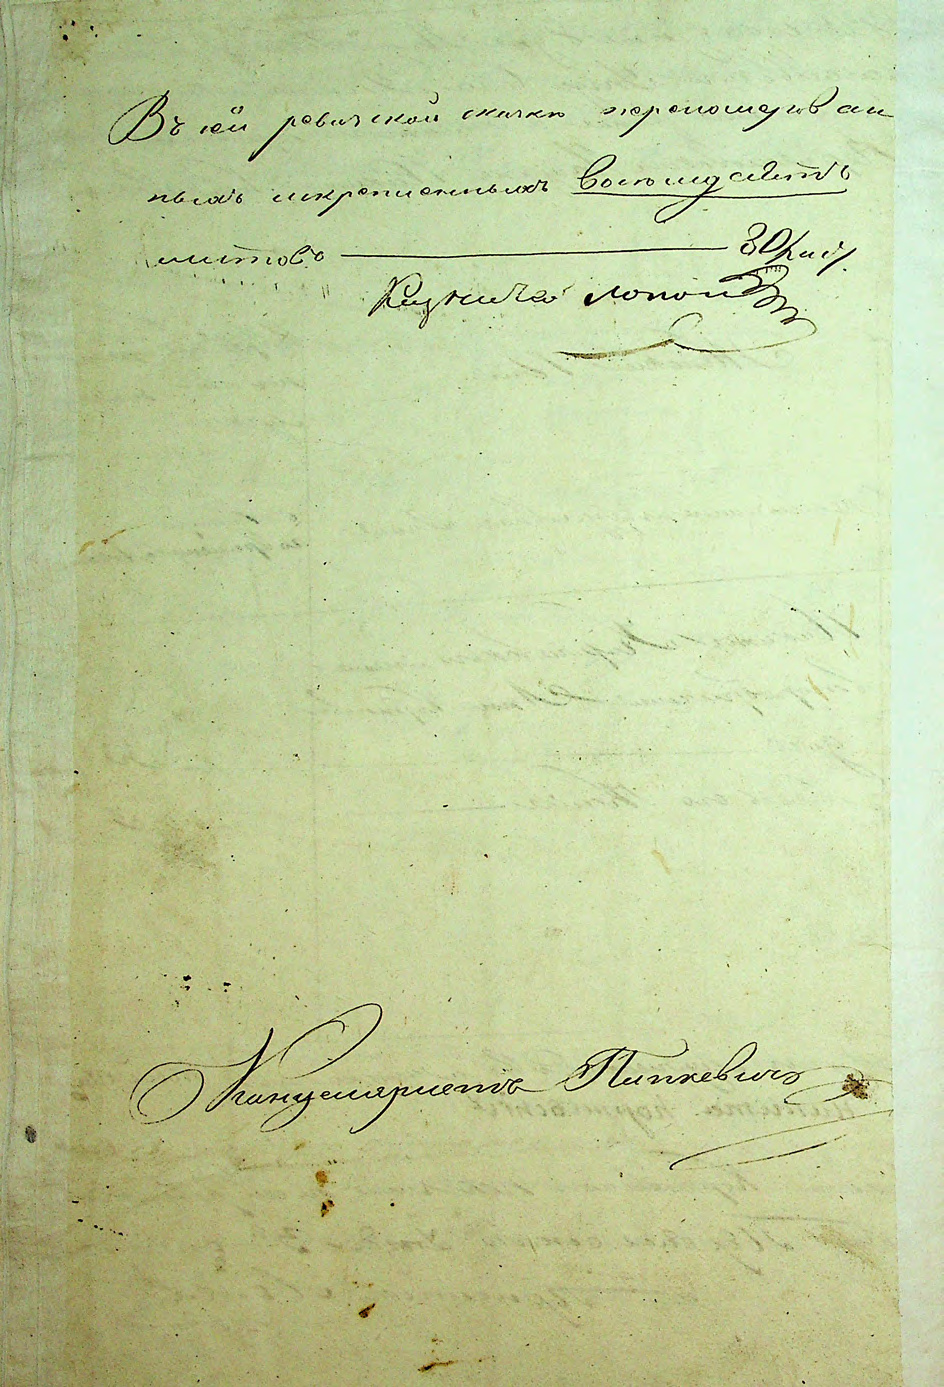 Въ сей ревизской сказке перенумерован
ныхъ искрепленныхъ восемдесятъ
листовъ ——— 80 лис.
Казначей
Канцеляристъ Пипкевичъ